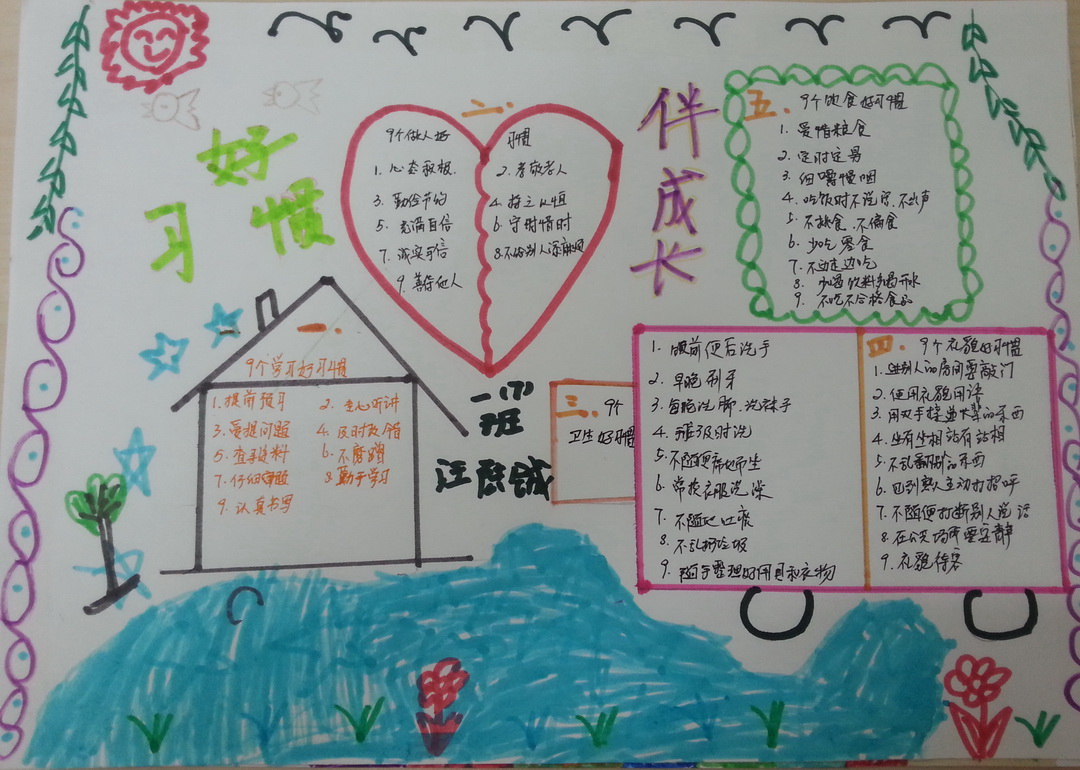 好
习惯
伴成长
一.
9个学习好习惯
1.提前预习
2.专心听讲
3.爱提问题
4.及时改错
5.查找资料
6.不磨蹭
7.仔细审题
8.勤于学习
9.认真书写
二.
9个做人好习惯
1.心态积极.
2.孝敬老人
3.勤俭节约
4.持之以恒
5.充满自信
6.守时惜时
7.诚实守信
8.不给别人添麻烦
9.善待他人
一(小)班
三.9个
卫生好习惯
1.饭前便后洗手
2.早晚刷牙
3.每晚洗脚.洗袜子
4.
5.不随便席地而坐
6.常换衣服洗澡
7.不随地吐痰
8.不乱扔垃圾
9.随手整理好用具和衣物
四.9个礼貌好习惯
1.进别人的房间要敲门
2.使用礼貌用语
3.用双手接递长辈的东西
4.坐有坐相站有站相
5.不乱翻别人的东西
6.见到熟人主动打招呼
7.不随便打断别人说话
8.在公共场所要安静
9.礼貌待客
五.9个饮食好习惯
1.爱惜粮食
2.定时定量
3.细嚼慢咽
4.吃饭时不说话.不出声
5.不挑食.不偏食
6.少吃零食
7.不边走边吃
8.少喝饮料多喝开水
9.不吃不合格食品